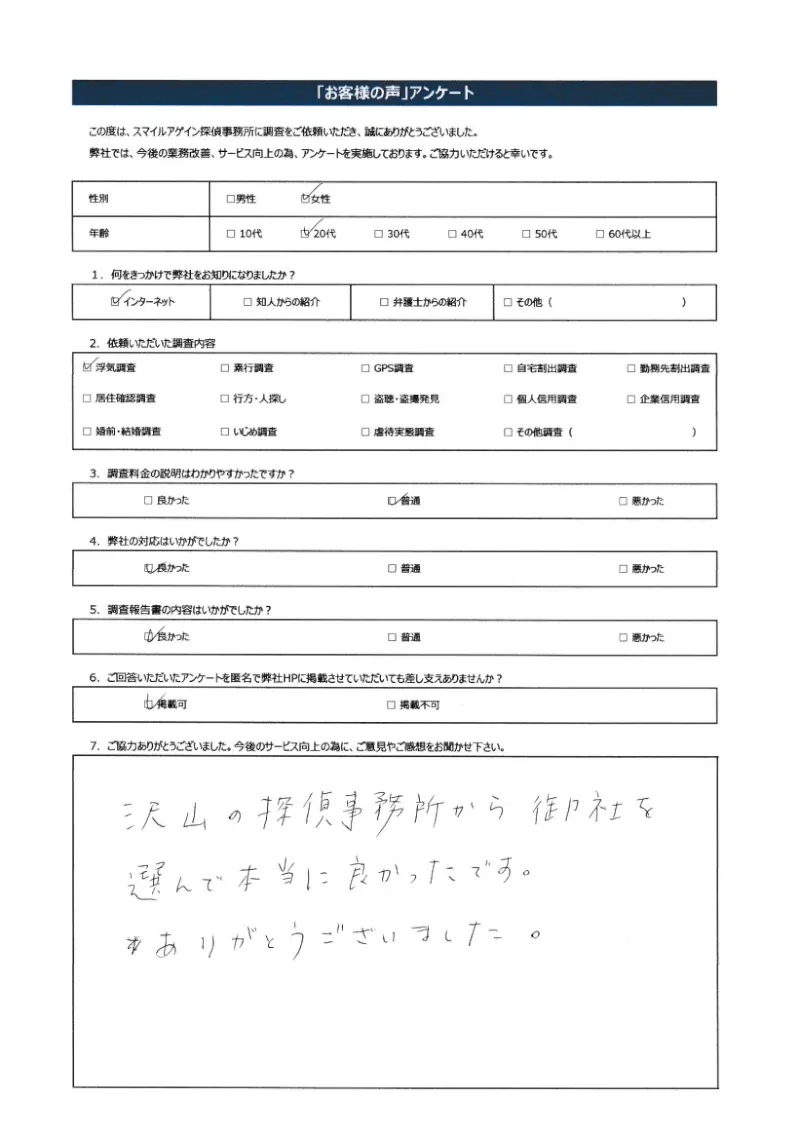 「お客様の声」アンケート
この度は、スマイルアゲイン探偵事務所に調査をご依頼いただき、誠にありがとうございました。
弊社では、今後の業務改善、サービス向上の為、アンケートを実施しております。ご協力いただけると幸いです。
性別 □男性 ☑女性
年齢 □ 10代 ☑ 20代 □ 30代 □ 40代 □ 50代 □ 60代以上
1. 何をきっかけで弊社をお知りになりましたか？
☑ インターネット □ 知人からの紹介 □ 弁護士からの紹介 □ その他（ ）
2. 依頼いただいた調査内容
☑ 浮気調査 □ 素行調査 □ GPS調査 □ 自宅割出調査 □ 勤務先割出調査
□ 居住確認調査 □ 行方・人探し □ 盗聴・盗撮発見 □ 個人信用調査 □ 企業信用調査
□ 婚前・結婚調査 □ いじめ調査 □ 虐待実態調査 □ その他調査（ ）
3. 調査料金の説明はわかりやすかったですか？
□ 良かった ☑ 普通 □ 悪かった
4. 弊社の対応はいかがでしたか？
☑ 良かった □ 普通 □ 悪かった
5. 調査報告書の内容はいかがでしたか？
☑ 良かった □ 普通 □ 悪かった
6. ご回答いただいたアンケートを匿名で弊社HPに掲載させていただいても差し支えありませんか？
☑ 掲載可 □ 掲載不可
7. ご協力ありがとうございました。今後のサービス向上の為に、ご意見やご感想をお聞かせ下さい。
沢山の探偵事務所から御社を
選んで本当に良かったです。
ありがとうございました。